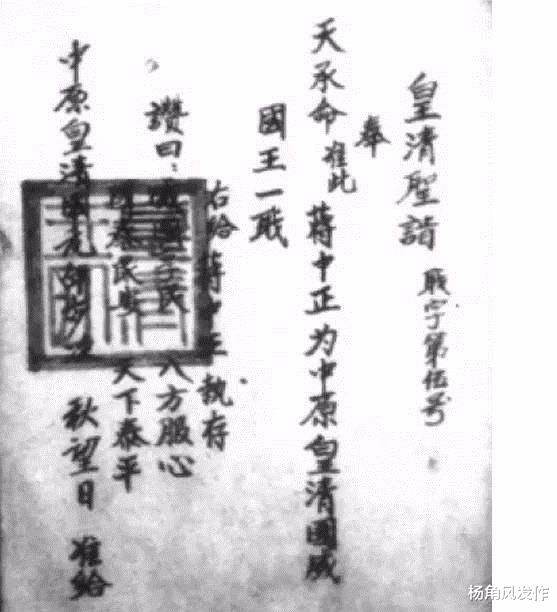 皇清聖詔 戝字第伍号
奉
天承命 准此 蒋中正为中原皇清國威
國王一戝
右给蒋中正执存
讚曰： 民 八方服心
國泰民安 天下泰平
中原皇清 元 秋望日 准给
杨角风发作